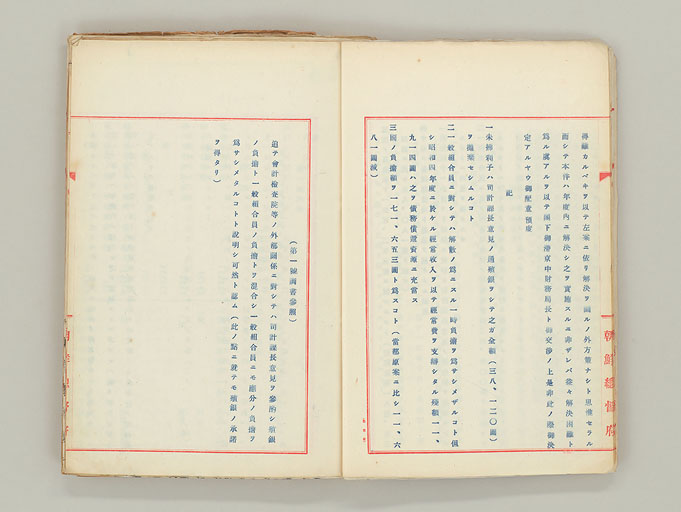 得難カルベキヲ以テ左案ニ依リ解決ヲ圖ルノ外方策ナシト思惟セラル
而シテ本件ハ年度内ニ解決シ之ヲ實施スルニ非ザレバ益々解決困難ト
爲ル虞アルヲ以テ閣下御滯京中財務局長ト御交渉ノ上是非此ノ際御決
定アルヤウ御配意預度
記
一 未拂利子ハ司計課長意見ノ通殖銀ヲシテ之ガ全額(三八、一二〇圓)
ヲ拋棄セシムルコト
二 一般組合員ニ對シテハ解散ノ爲ニスル一時負擔ヲ爲サシメザルコト但
シ昭和四年度ニ於ケル經常收入ヲ以テ經常費ヲ支辨シタル殘額一一、
九一四圓ハ之ヲ債務償還資源ニ充當ス
三 國ノ負擔額ヲ一七一、六五三圓ト爲スコト(當部原案ニ比シ一一、六
八一圓減)
(第一號調書參照)
追テ會計檢査院等ノ外部關係ニ對シテハ司計課長意見ヲ參酌シ殖銀
ノ負擔ト一般組合員ノ負擔トヲ混合シ一般組合員ニモ應分ノ負擔ヲ
爲サシメタルコトト說明シ可然ト認ム(此ノ點ニ就テモ殖銀ノ承諾
ヲ得タリ)
朝鮮總督府